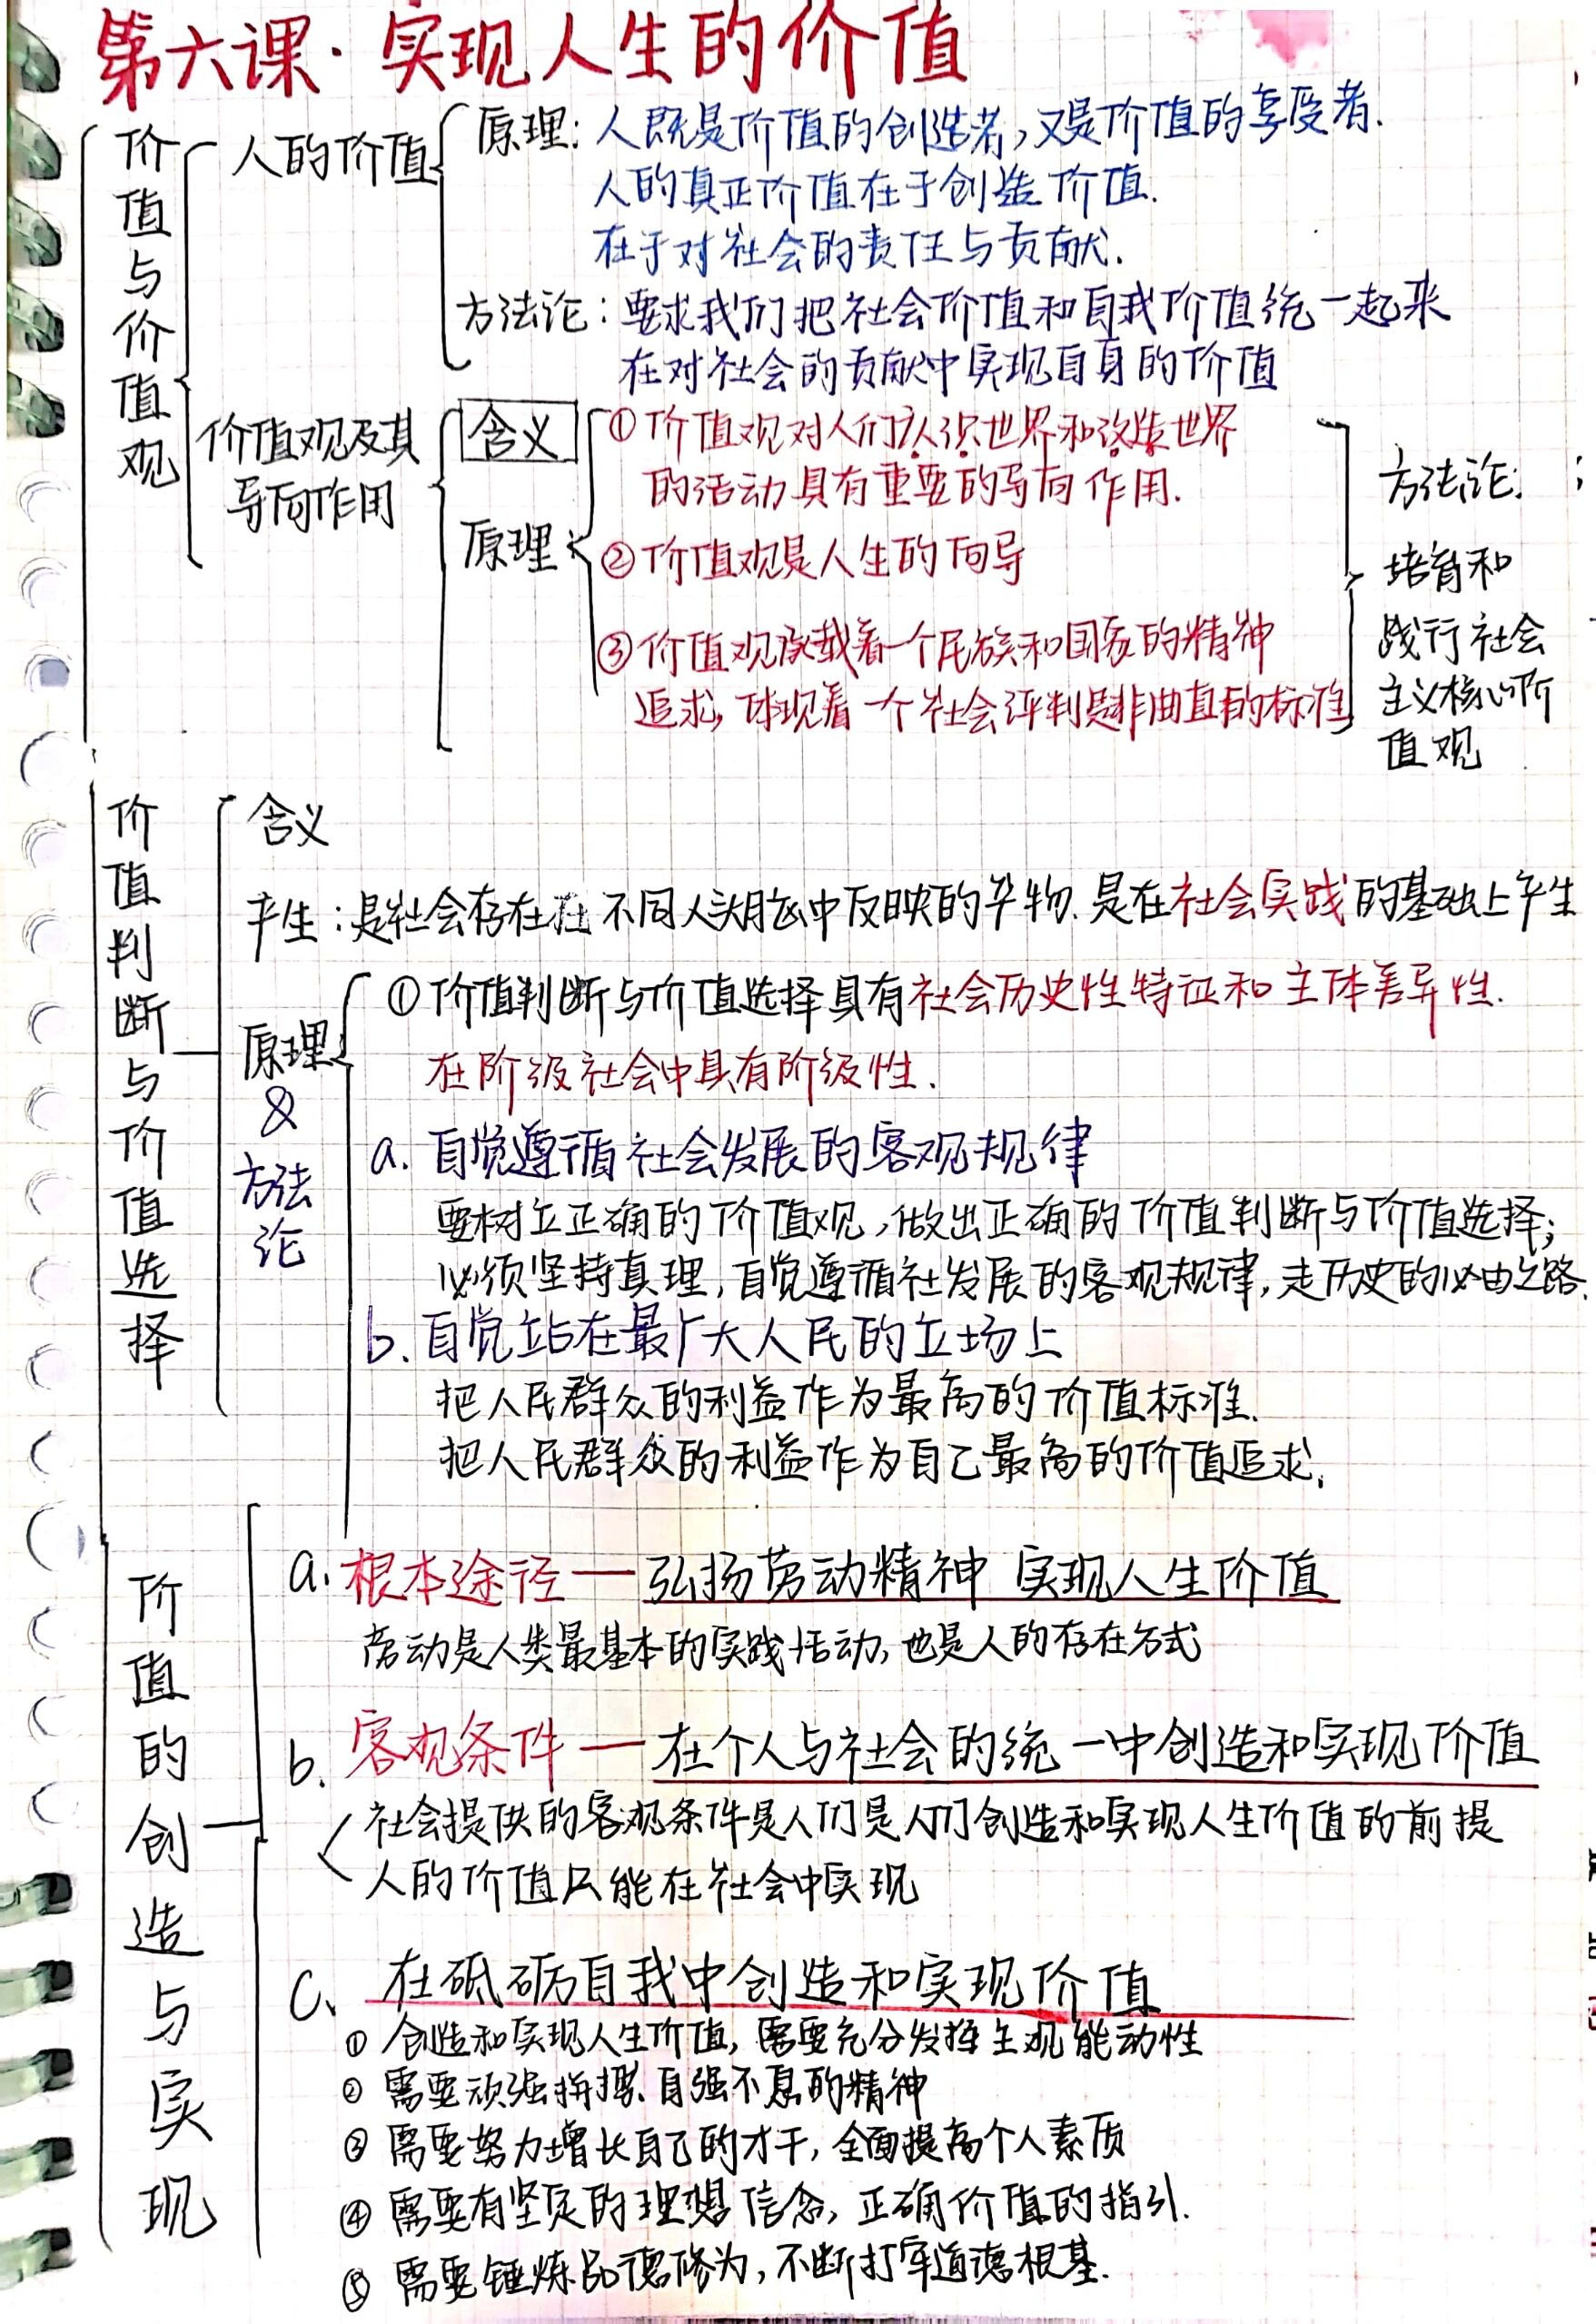 第六课·实现人生的价值
价值与价值观
人的价值
原理：人既是价值的创造者，又是价值的享受者.
人的真正价值在于创造价值.
在于对社会的责任与贡献.
方法论：要求我们把社会价值和自我价值统一起来
在对社会的贡献中实现自身的价值
价值观及其
导向作用
含义
原理
①价值观对人们认识世界和改造世界
的活动具有重要的导向作用.
②价值观是人生的向导
③价值观承载着一个民族和国家的精神
追求，体现着一个社会评判是非曲直的标准
方法论：
培育和
践行社会
主义核心价
值观
价值判断与价值选择
含义
产生：是社会存在在不同人头脑中反映的产物.是在社会实践的基础上产生
原理
&
方法
论
①价值判断与价值选择具有社会历史性特征和主体差异性.
在阶级社会中具有阶级性.
a. 自觉遵循社会发展的客观规律
要树立正确的价值观，做出正确的价值判断与价值选择；
必须坚持真理，自觉遵循社发展的客观规律，走历史的必由之路.
b. 自觉站在最广大人民的立场上
把人民群众的利益作为最高的价值标准.
把人民群众的利益作为自己最高的价值追求.
价值的创造与实现
a. 根本途径—弘扬劳动精神 实现人生价值
劳动是人类最基本的实践活动，也是人的存在方式
b. 客观条件—在个人与社会的统一中创造和实现价值
社会提供的客观条件是人们是人们创造和实现人生价值的前提
人的价值只能在社会中实现
c、在砥砺自我中创造和实现价值
① 创造和实现人生价值，需要充分发挥主观能动性
② 需要顽强拼搏、自强不息的精神
③ 需要努力增长自己的才干，全面提高个人素质
④ 需要有坚定的理想信念，正确价值的指引.
⑤ 需要锤炼品德修为，不断打牢道德根基.